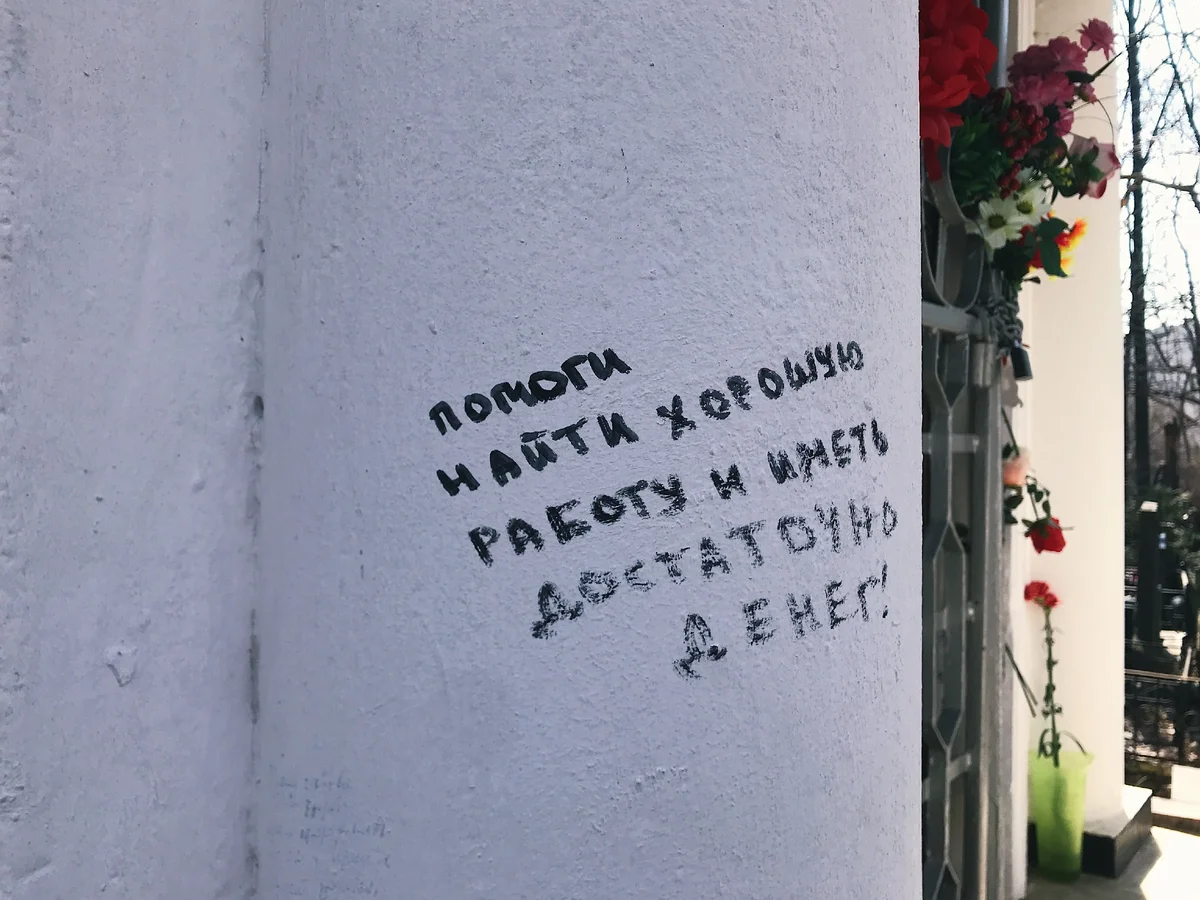 ПОМОГИ
НАЙТИ ХОРОШУЮ
РАБОТУ И ИМЕТЬ
ДОСТАТОЧНО
ДЕНЕГ!